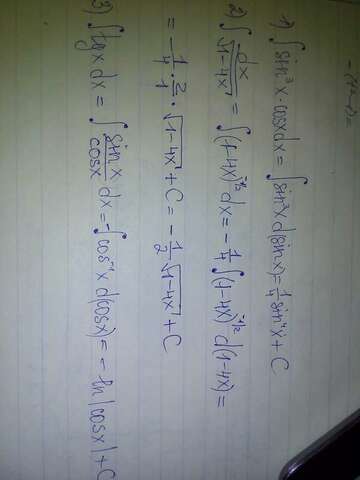 1) ∫ sin³x · cosx dx = ∫ sin³x d(sinx) = 1/4 sin⁴x + C
2) ∫ dx/√(1-4x) = ∫ (1-4x)^(-1/2) dx = -1/4 ∫ (1-4x)^(-1/2) d(1-4x) =
= -1/4 · 2/1 · √(1-4x) + C = -1/2 √(1-4x) + C
3) ∫ tg x dx = ∫ sin x/cosx dx = -∫ cos⁻¹x d(cosx) = -ln|cosx| + C